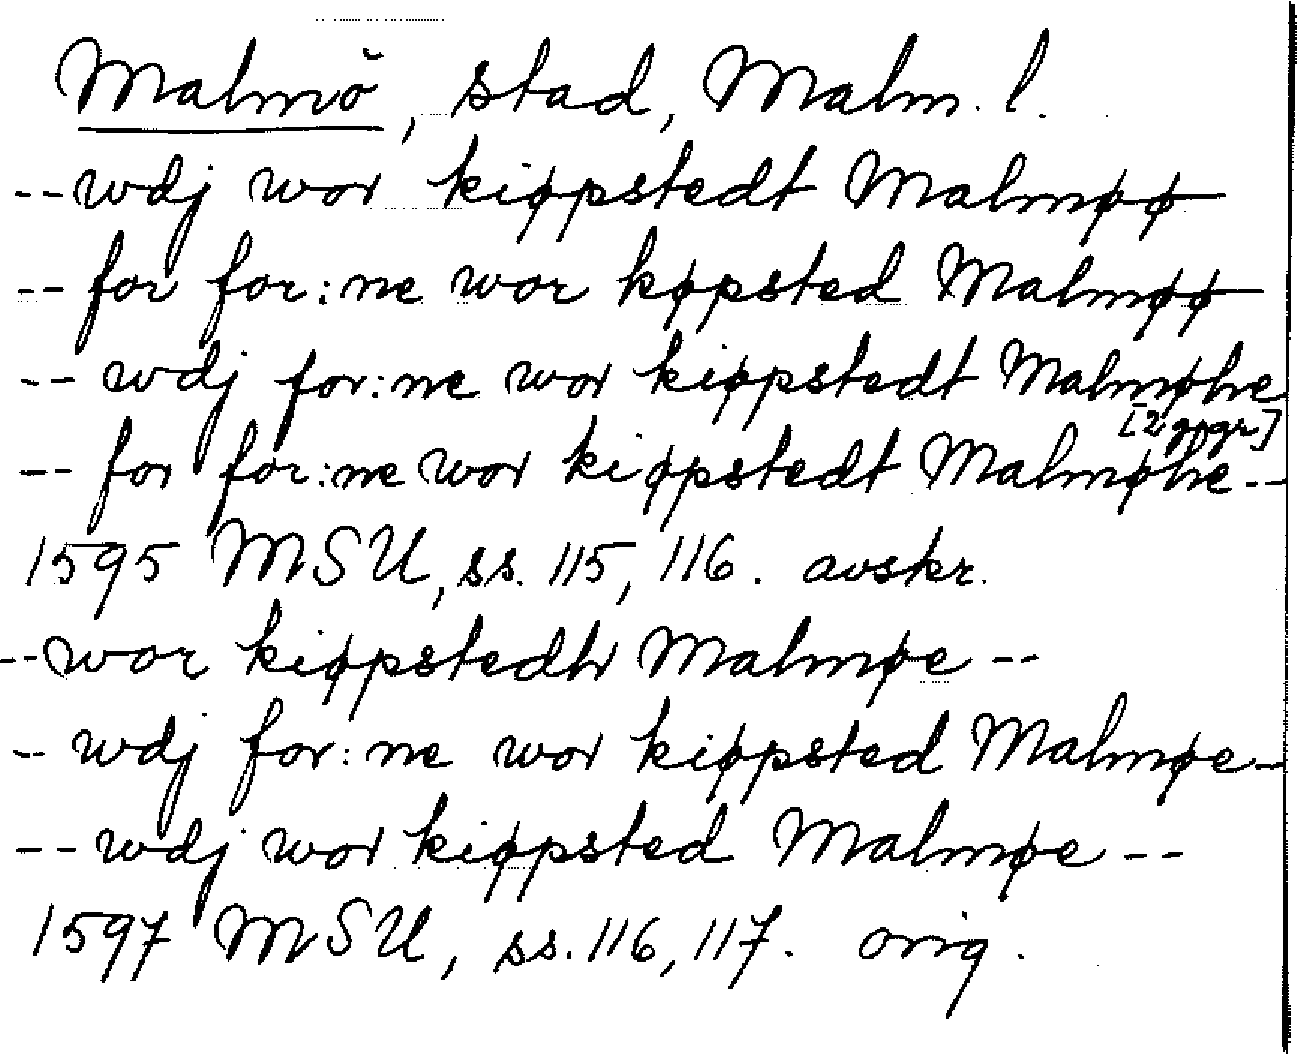 Malmö, stad, Malm. l.
-- wdj wor kiøpstedt Malmøø
-- for for:ne wor køpsted Malmøø
-- wdj for:ne wor kiøpstedt Malmøhe
[2 ggr.]
-- for for:ne wor kiøpstedt Malmøhe --
1595 MSU, ss. 115, 116. avskr.
-- wor kiøpstedh Malmøe --
-- wdj for:ne wor kiøpsted Malmøe -
-- wdj wor kiøpsted Malmøe --
1597 MSU, ss. 116, 117. orig.